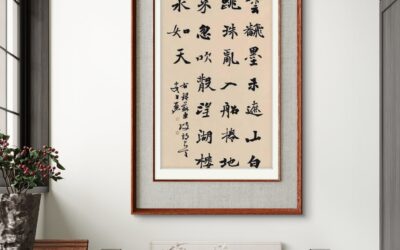 雲翻墨未遮山白
跳珠亂入船捲地
來忽吹散望湖樓
水如天